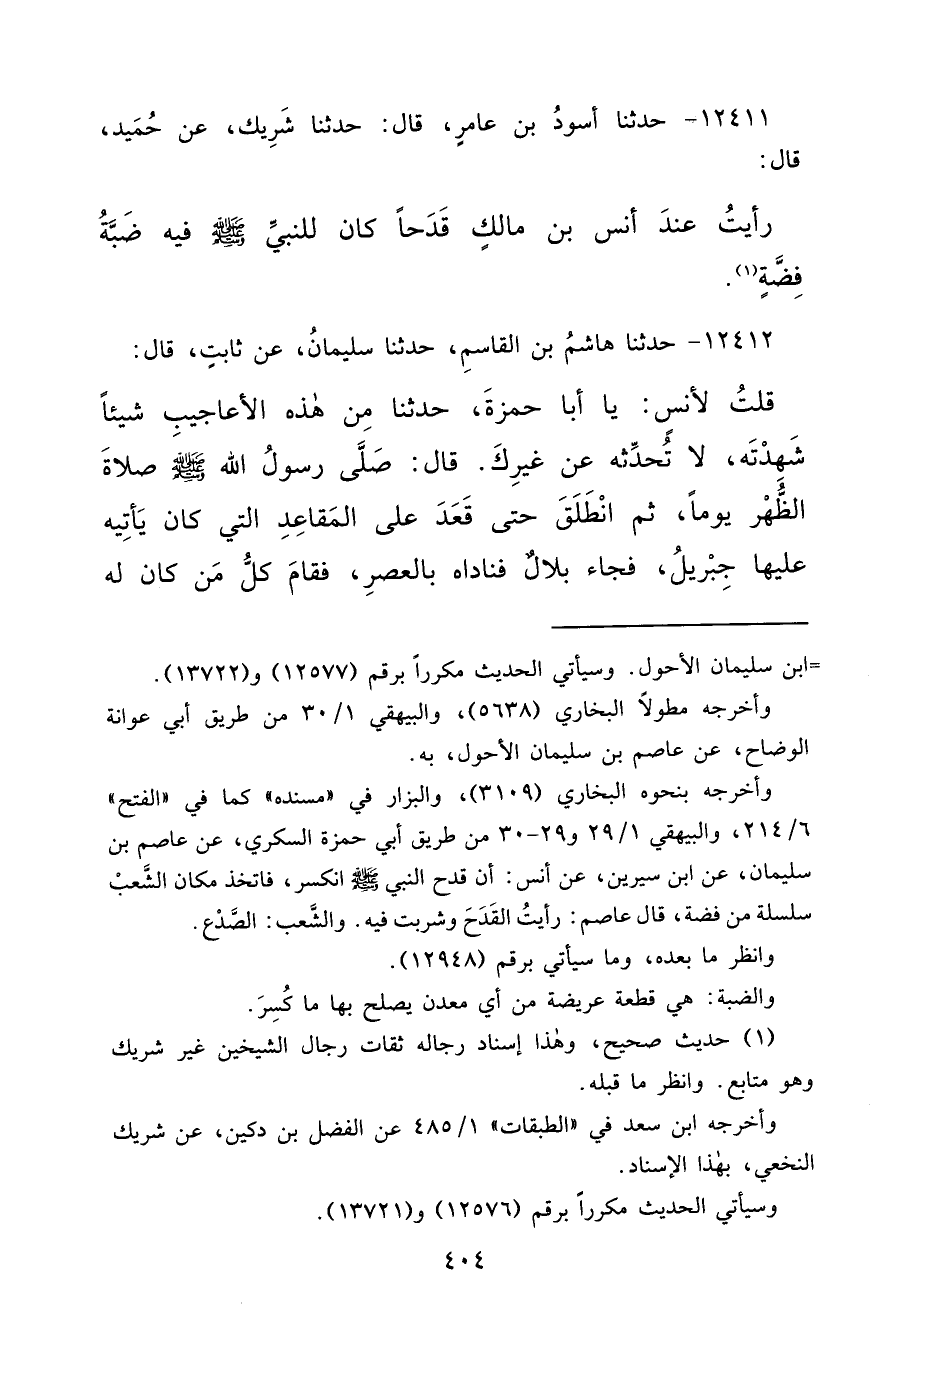 ١٢٤١١- حدثنا أسودُ بن عامرٍ، قال: حدثنا شَرِيك، عن حُمَيد،
قال:
رأيتُ عندَ أنس بن مالكٍ قَدَحاً كان للنبيِّ ﷺ فيه ضَبَّةُ
فِضَّةٍ(١).
١٢٤١٢- حدثنا هاشمُ بن القاسمِ، حدثنا سليمانُ، عن ثابتٍ، قال:
قلتُ لأنسٍ: يا أبا حمزةَ، حدثنا مِن هٰذه الأعاجيبِ شيئاً
شَهِدْتَه، لا تُحدِّثه عن غيرِكَ. قال: صَلَّى رسولُ الله ﷺ صلاةَ
الظُّهْر يوماً، ثم انْطَلَقَ حتى قَعَدَ على المَقاعِدِ التي كان يَأتِيه
عليها جِبْريلُ، فجاء بلالٌ فناداه بالعصرِ، فقامَ كلُّ مَن كان له
=ابن سليمان الأحول. وسيأتي الحديث مكرراً برقم (١٢٥٧٧) و(١٣٧٢٢).
وأخرجه مطولاً البخاري (٥٦٣٨)، والبيهقي ٣٠/١ من طريق أبي عوانة
الوضاح، عن عاصم بن سليمان الأحول، به.
وأخرجه بنحوه البخاري (٣١٠٩)، والبزار في «مسنده» كما في «الفتح»
٢١٤/٦، والبيهقي ٢٩/١ و٢٩-٣٠ من طريق أبي حمزة السكري، عن عاصم بن
سليمان، عن ابن سيرين، عن أنس: أن قدح النبي ﷺ انكسر، فاتخذ مكان الشَّعبْ
سلسلة من فضة، قال عاصم: رأيتُ القَدَحَ وشربت فيه. والشَّعب: الصَّدْع.
وانظر ما بعده، وما سيأتي برقم (١٢٩٤٨).
والضبة: هي قطعة عريضة من أي معدن يصلح بها ما كُسِرَ.
(١) حديث صحيح، وهٰذا إسناد رجاله ثقات رجال الشيخين غير شريك
وهو متابع. وانظر ما قبله.
وأخرجه ابن سعد في «الطبقات» ٤٨٥/١ عن الفضل بن دكين، عن شريك
النخعي، بهٰذا الإسناد.
وسيأتي الحديث مكرراً برقم (١٢٥٧٦) و(١٣٧٢١).
٤٠٤